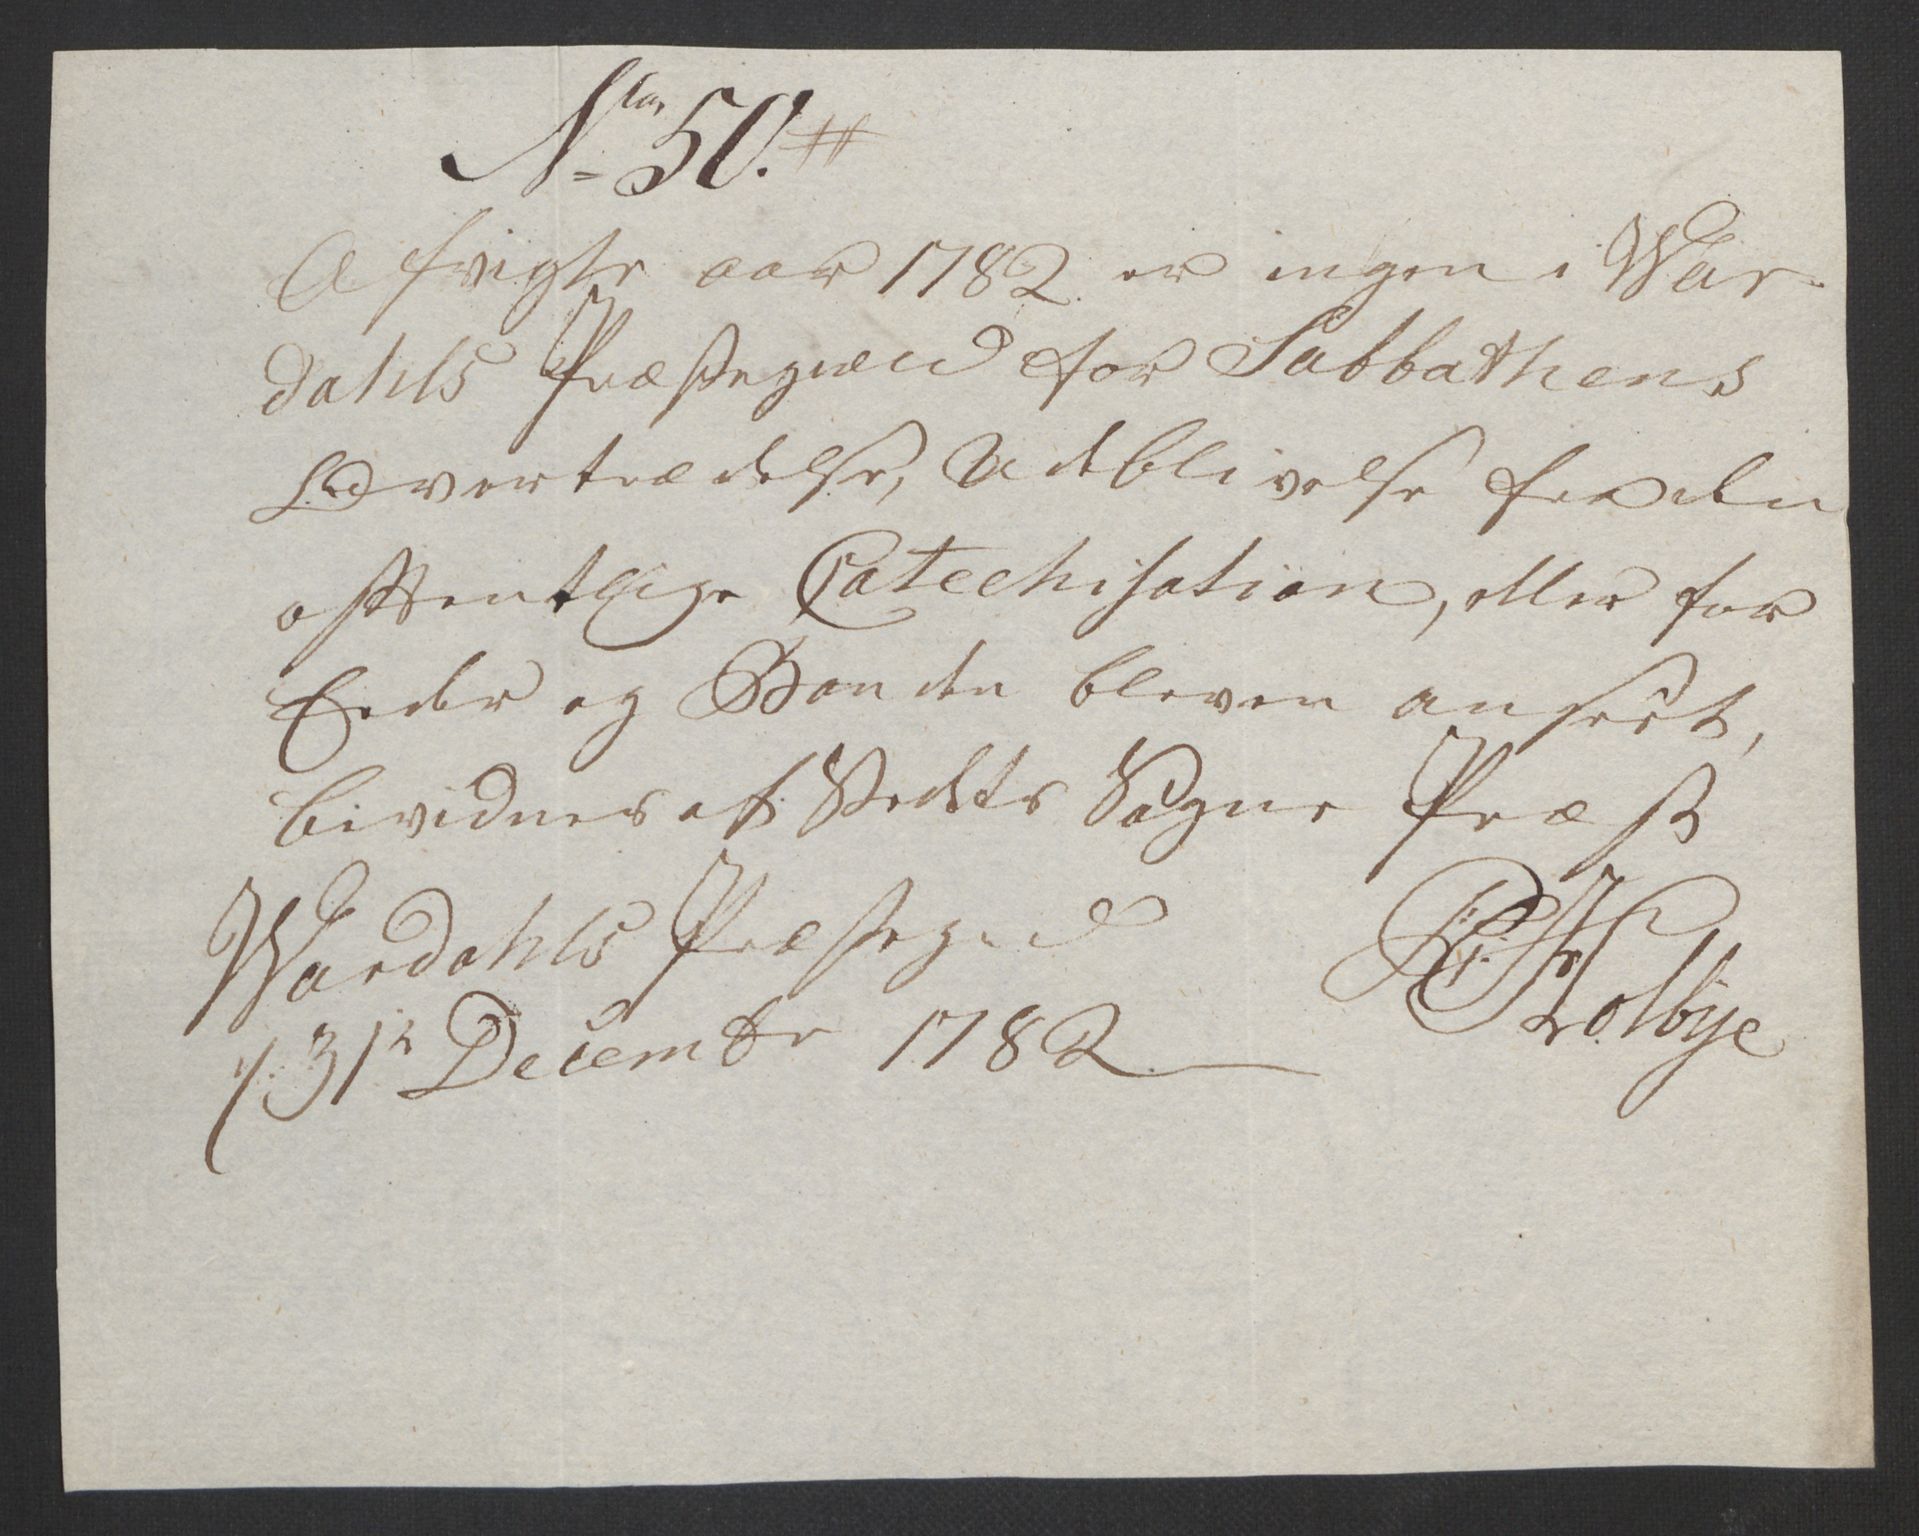 No 50.
Afvigte aar 1782 er ingen i War-
dahls Præstegield for Sabbathens
Overtrædelse, Udeblivelse fra den
offentlige Catechisation, eller for
Eeder og Banden bleven anseet,
bividnes af Stedets Sogne Præst
Wardahls Præstegield
31te Decembr 1782
Kolbye